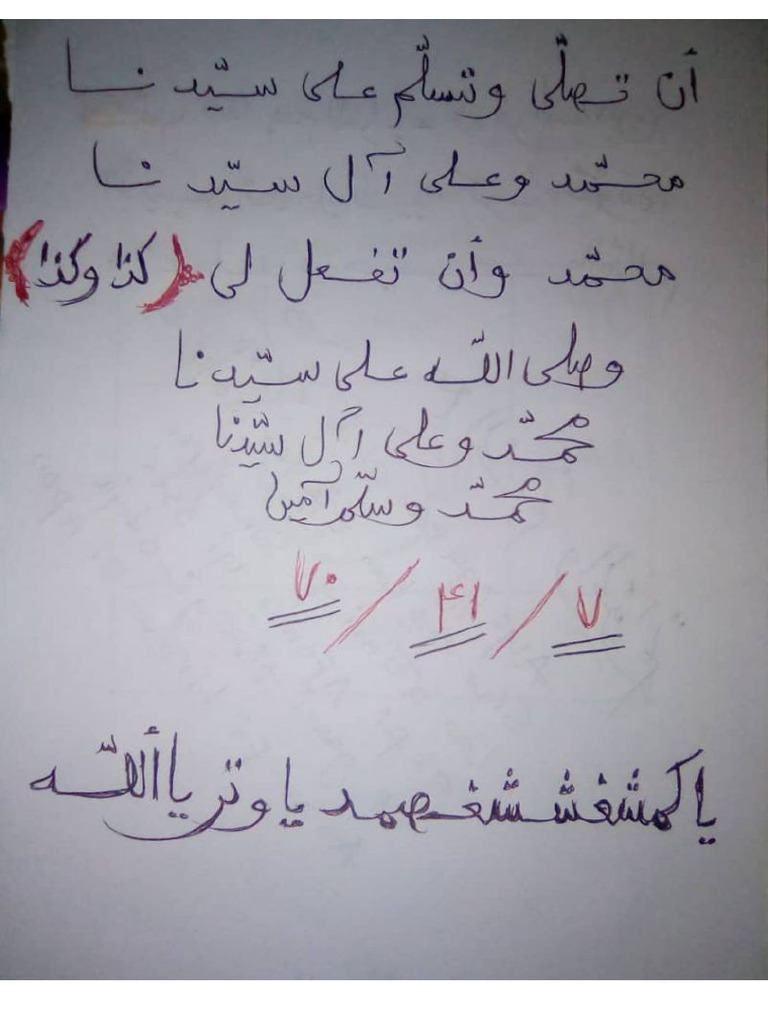 أن تصلّى وتسلّم على سيّدنا
محمّد وعلى آل سيّدنا
محمّد وأن تفعل لى (كذا وكذا)
وصلى اللّه على سيّدنا
محمّد وعلى آل سيّدنا
محمّد وسلّم آمين
٧ / ٤١ / ٧٠
ياكمشفششفصمد ياوتر ياأللّه